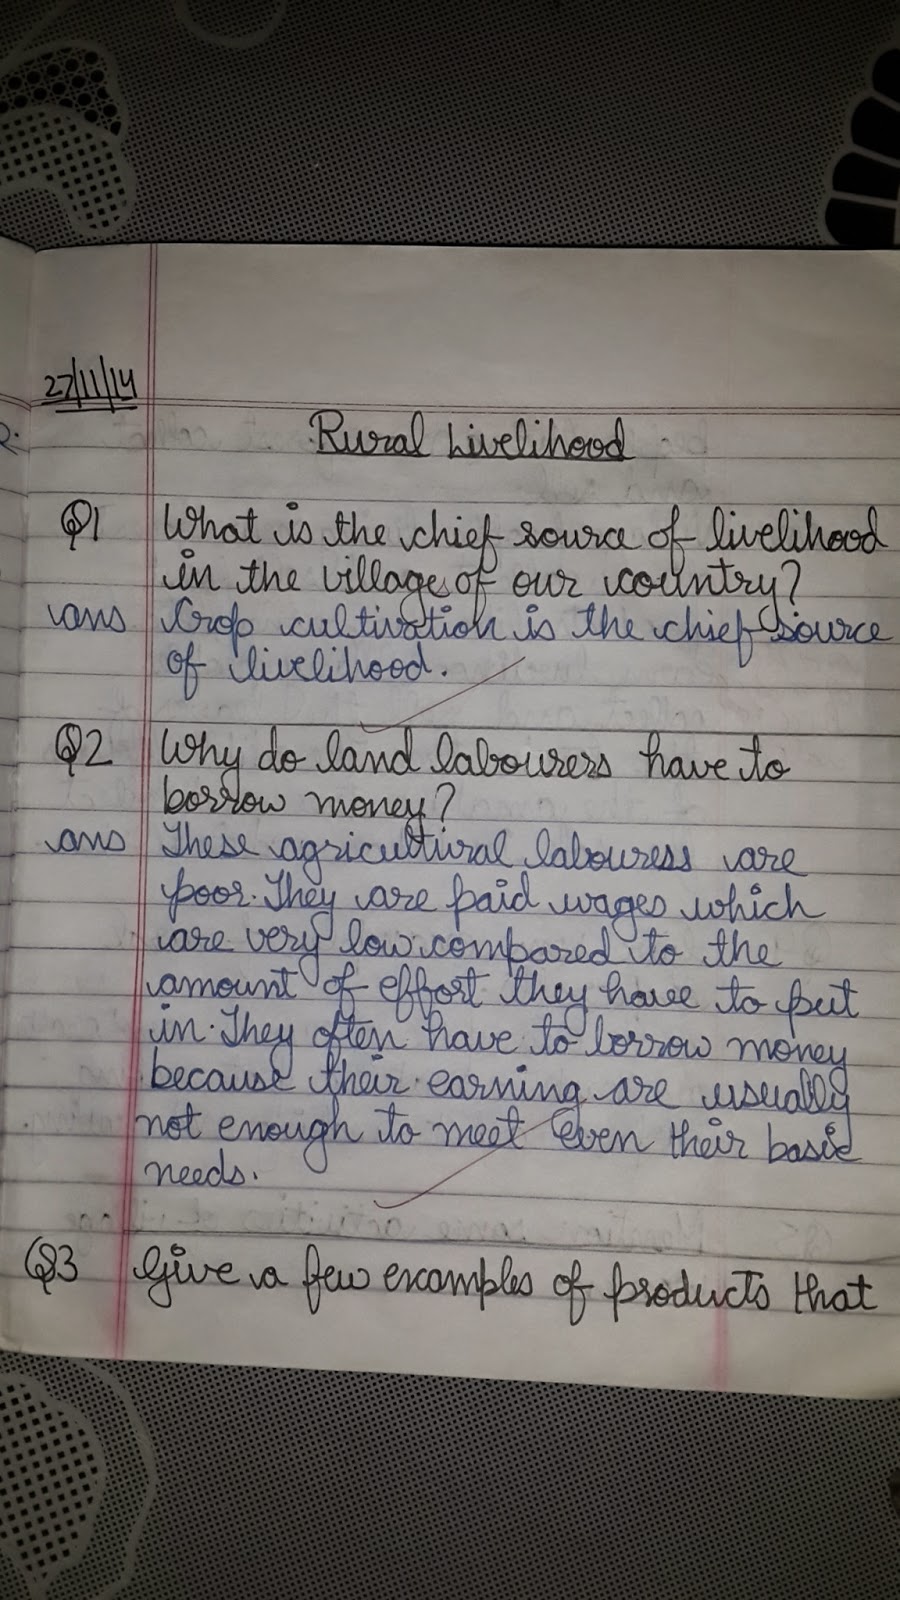 27/11/14
Rural Livelihood
Q1 What is the chief source of livelihood
in the village of our country?
ans Crop cultivation is the chief source
of livelihood.
Q2 Why do land labourers have to
borrow money?
ans These agricultural labourers are
poor. They are paid wages which
are very low compared to the
amount of effort they have to put
in. They often have to borrow money
because their earning are usually
not enough to meet even their basic
needs.
Q3 Give a few examples of products that